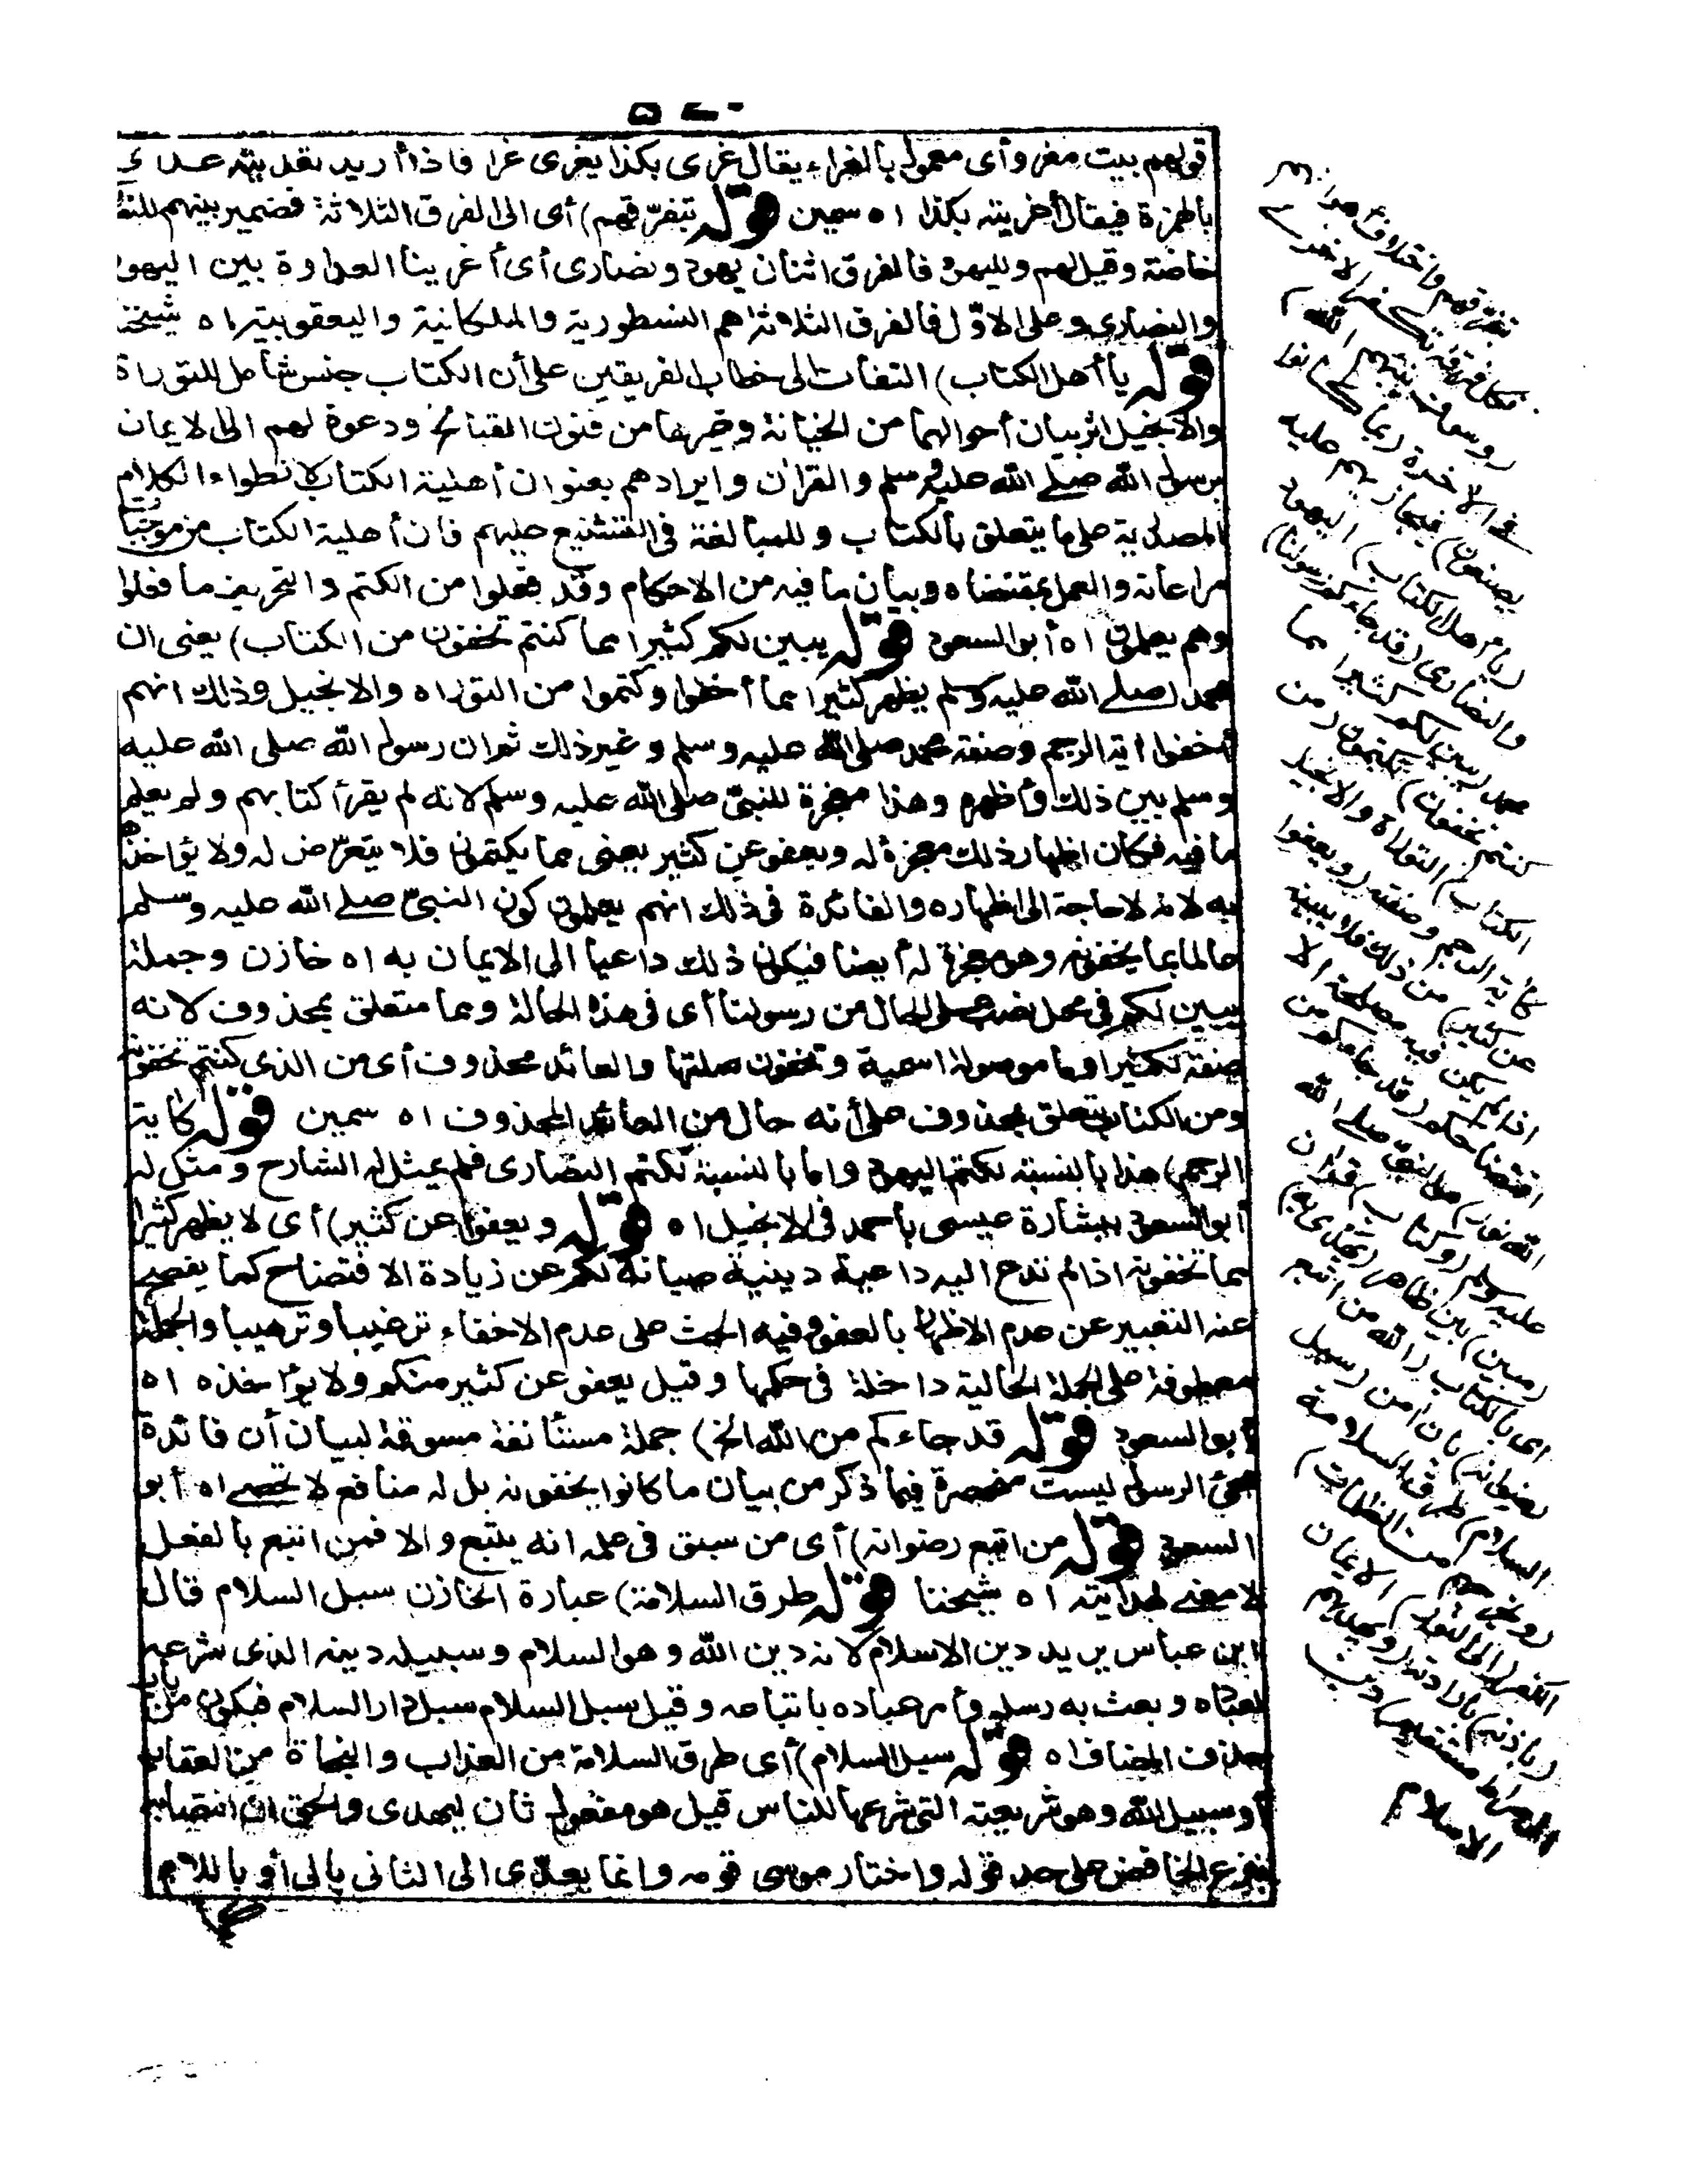 قولهم بيت مغرو أى معمول بالغراء يقال غرى بكذا يغرى غرا فاذا أريد تعديته عدى
بالهمزة فيقال أغريته بكذا اه سمين قوله بتفرّقهم) أى الى الفرق الثلاثة فضمير بينهم للنصا
خاصة وقيل لهم ولليهود فالفرق اثنان يهود ونصارى أى أغرينا العداوة بين اليهود
والنصارى وعلى الاوّل فالفرق الثلاثة هم النسطورية والملكانية واليعقوبية اه شيخنا
قوله يا أهل الكتاب) التفات الى خطاب الفريقين على أن الكتاب جنس شامل للتوراة
والانجيل اثر بيان أحوالهما من الخيانة وغيرها من فنون القبائح ودعوة لهم الى الايمان
برسول الله صلى الله عليه وسلم والقران وايرادهم بعنوان أهلية الكتاب لانطواء الكلام
المصدر به على ما يتعلق بالكتاب وللمبالغة فى التشنيع عليهم فان أهلية الكتاب من موجبا
مراعاته والعمل بمقتضاه وبيان ما فيه من الاحكام وقد فعلوا من الكتم والتحريف ما فعلوا
وهم يعملون اه أبو السعود قوله يبين لكم كثيرا مما كنتم تخفون من الكتاب) يعنى ان
محمد صلى الله عليه وسلم يظهر كثيرا مما أخفوا وكتموا من التوراه والانجيل وذلك انهم
أخفوا اية الرجم وصفة محمد صلى الله عليه وسلم وغير ذلك ثم ان رسول الله صلى الله عليه
وسلم بين ذلك وأظهره وهذا معجزة للنبىّ صلى الله عليه وسلم لانه لم يقرأ كتابهم ولم يعلم
ما فيه فكان اظهار ذلك معجزة له ويعفو عن كثير يعنى مما يكتمون فلا يتعرّض له ولا يؤاخذهم
به لانه لا حاجة الى اظهاره والفائدة فى ذلك انهم يعلمون كون النبىّ صلى الله عليه وسلم
عالما بما يخفونه وهو معجزة له أيضا فيكون ذلك داعيا الى الايمان به اه خازن وجملة
يبين لكم فى محل نصب على الحال من رسولنا أى فى هذه الحالة ومما متعلق بمحذوف لانه
صفة لكثيرا وما موصولة اسمية وتخفون صلتها والعائد محذوف أى من الذى كنتم تخفونه
ومن الكتاب يتعلق بمحذوف على أنه حال من العائد المحذوف اه سمين قوله كاية
الرجم) هذا بالنسبة لكتم اليهود واما بالنسبة لكتم النصارى فلم يمثل له الشارح ومثل له
أبو السعود ببشارة عيسى بأحمد فى الانجيل اه قوله ويعفوا عن كثير) أى لا يظهر كثيرا
مما تخفونه اذا لم تدع اليه داعية دينية صيانة لكم عن زيادة الافتضاح كما يفصح
عنه التعبير عن عدم الاظهار بالعفو وفيه الحث على عدم الاخفاء ترغيبا وترهيبا والجملة
معطوفة على الجملة الحالية داخلة فى حكمها وقيل يعفو عن كثير منكم ولا يؤاخذه اه
أبو السعود قوله قد جاءكم من الله الخ) جملة مستأنفة مسوقة لبيان أن فائدة
مجئ الرسول ليست منحصرة فيما ذكر من بيان ما كانوا يخفونه بل له منافع لا تحصى اه أبو
السعود قوله من اتبع رضوانه) أى من سبق فى علمه انه يتبع والا فمن اتبع بالفعل
لا معنى لهدايته اه شيخنا قوله طرق السلامة) عبارة الخازن سبل السلام قال
ابن عباس يريد دين الاسلام لانه دين الله وهو السلام وسبيله دينه الذى شرعه
لعباده وبعث به رسله وأمر عباده باتباعه وقيل سبل السلام سبل دار السلام فيكون من باب
حذف المضاف اه قوله سبل السلام) أى طرق السلامة من العذاب والنجاة من العقاب
أو سبيل الله وهو شريعته التى شرعها للناس قيل هو مفعول ثان ليهدى والحق ان انتصابه
بنزع الخافض على حد قوله واختار موسى قومه وانما يعدّى الى الثانى بالى أو باللام
بتفرقهم واختلاف
فكل فرقة تكفر الاخرى
وسوف ينبئهم الله
فى الاخرة بما كانوا
يصنعون) فيجازيهم عليه
(يا أهل الكتاب) اليهود
والنصارى (قد جاءكم رسولنا)
محمد (يبين لكم كثيرا مما
كنتم تخفون) تكتمون (من
الكتاب) التوراة والانجيل
كاية الرجم وصفته (ويعفوا
عن كثير) من ذلك فلا يبينه
اذا لم يكن فيه مصلحة الا
افتضاحكم (قد جاءكم من
الله نور) هو النبىّ صلى الله
عليه وسلم (وكتاب) قران
(مبين) بين ظاهر (يهدى به)
اى بالكتاب (الله من اتبع
رضوانه) بان امن (سبل
السلام) طرق السلامة
(ويخرجهم من الظلمات)
الكفر (الى النور) الايمان
(باذنه) بارادته (ويهديهم
الى صراط مستقيم) دين
الاسلام